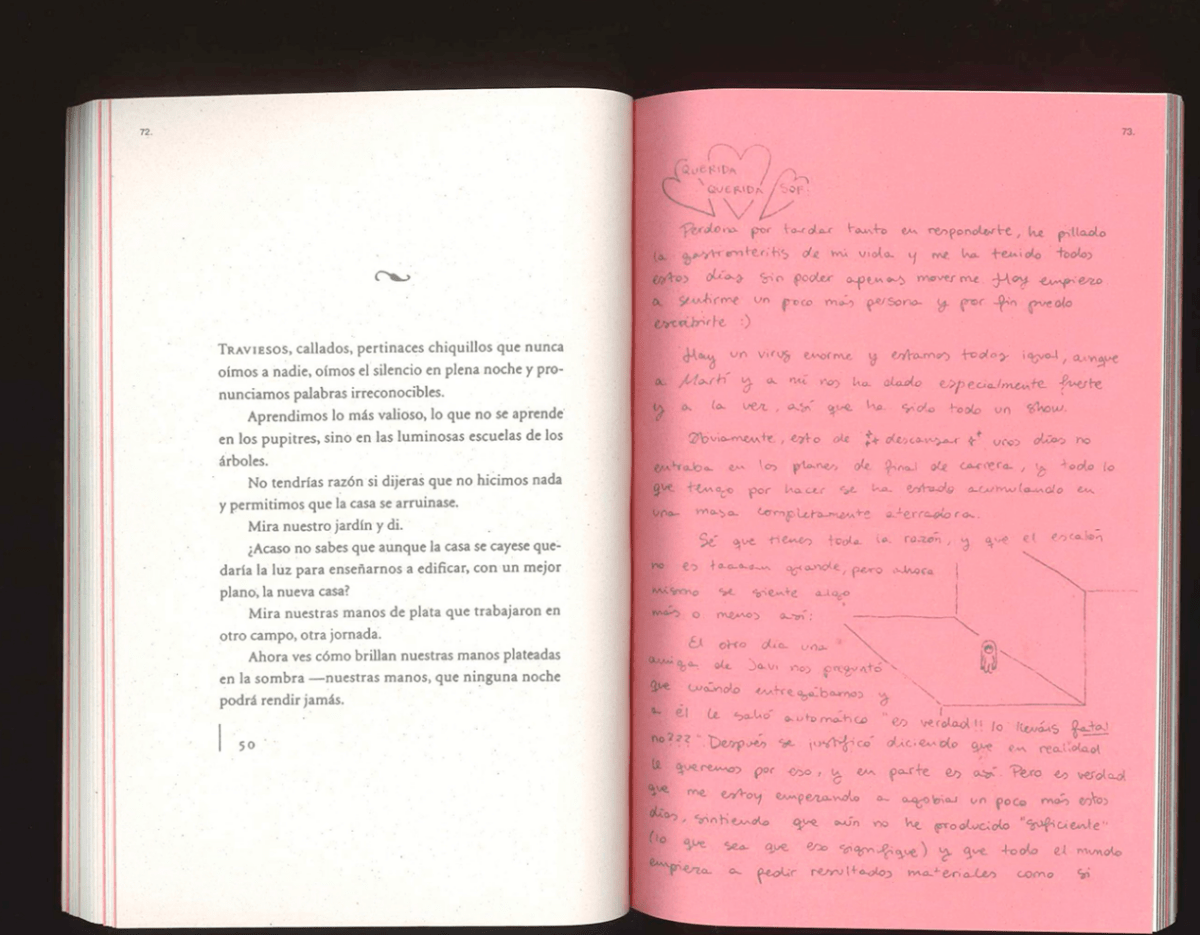 72.
TRAVIESOS, callados, pertinaces chiquillos que nunca
oímos a nadie, oímos el silencio en plena noche y pro-
nunciamos palabras irreconocibles.
Aprendimos lo más valioso, lo que no se aprende
en los pupitres, sino en las luminosas escuelas de los
árboles.
No tendrías razón si dijeras que no hicimos nada
y permitimos que la casa se arruinase.
Mira nuestro jardín y di.
¿Acaso no sabes que aunque la casa se cayese que-
daría la luz para enseñarnos a edificar, con un mejor
plano, la nueva casa?
Mira nuestras manos de plata que trabajaron en
otro campo, otra jornada.
Ahora ves cómo brillan nuestras manos plateadas
en la sombra —nuestras manos, que ninguna noche
podrá rendir jamás.
50
73.
QUERIDA
QUERIDA SOF
Perdona por tardar tanto en responderte, he pillado
la gastronteritis de mi vida y me ha tenido todos
estos días sin poder apenas moverme Hoy empiezo
a sentirme un poco más persona y por fin puedo
escribirte :)
Hay un virus enorme y estamos todas igual, aunque
a Martí y a mí nos ha dado especialmente fuerte
y a la vez, así que ha sido todo un show.
Obviamente, esto de descansar unos días no
entraba en los planes de final de carrera, y todo lo
que tengo por hacer se ha estado acumulando en
una masa completamente aterradora.
Sé que tienes toda la razón, y que el escalón
no es taaaaan grande, pero ahora
mismo se siente algo
más o menos así:
El otro día una
amiga de Javi nos preguntó
que cuándo entregábamos y
a él le salió automático "es verdad!! lo lleváis fatal
no???" Después se justificó diciendo que en realidad
le queremos por eso, y en parte es así. Pero es verdad
que me estoy empezando a agobiar un poco más estos
días, sintiendo que aún no he producido "suficiente"
(lo que sea que eso signifique) y que todo el mundo
empieza a pedir resultados materiales como si